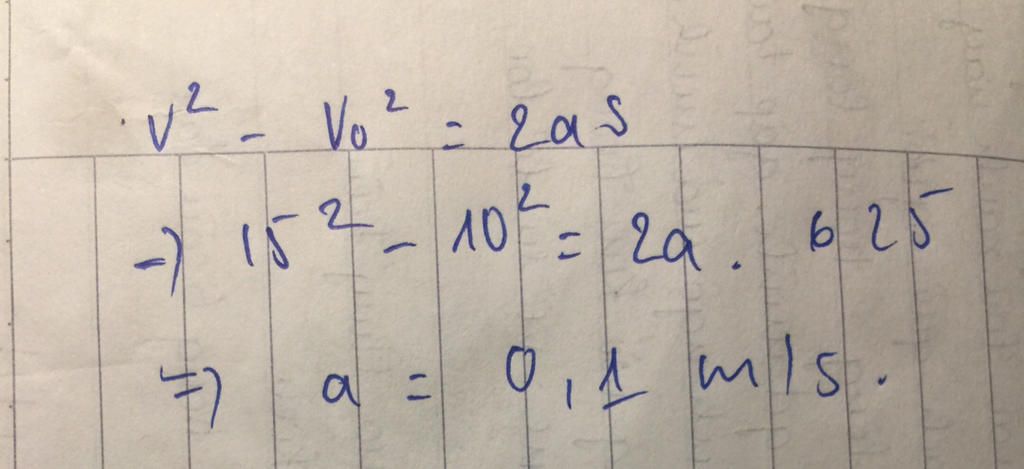 v² - v₀² = 2as
→ 15² - 10² = 2a . 625
⇒ a = 0,1 m/s.